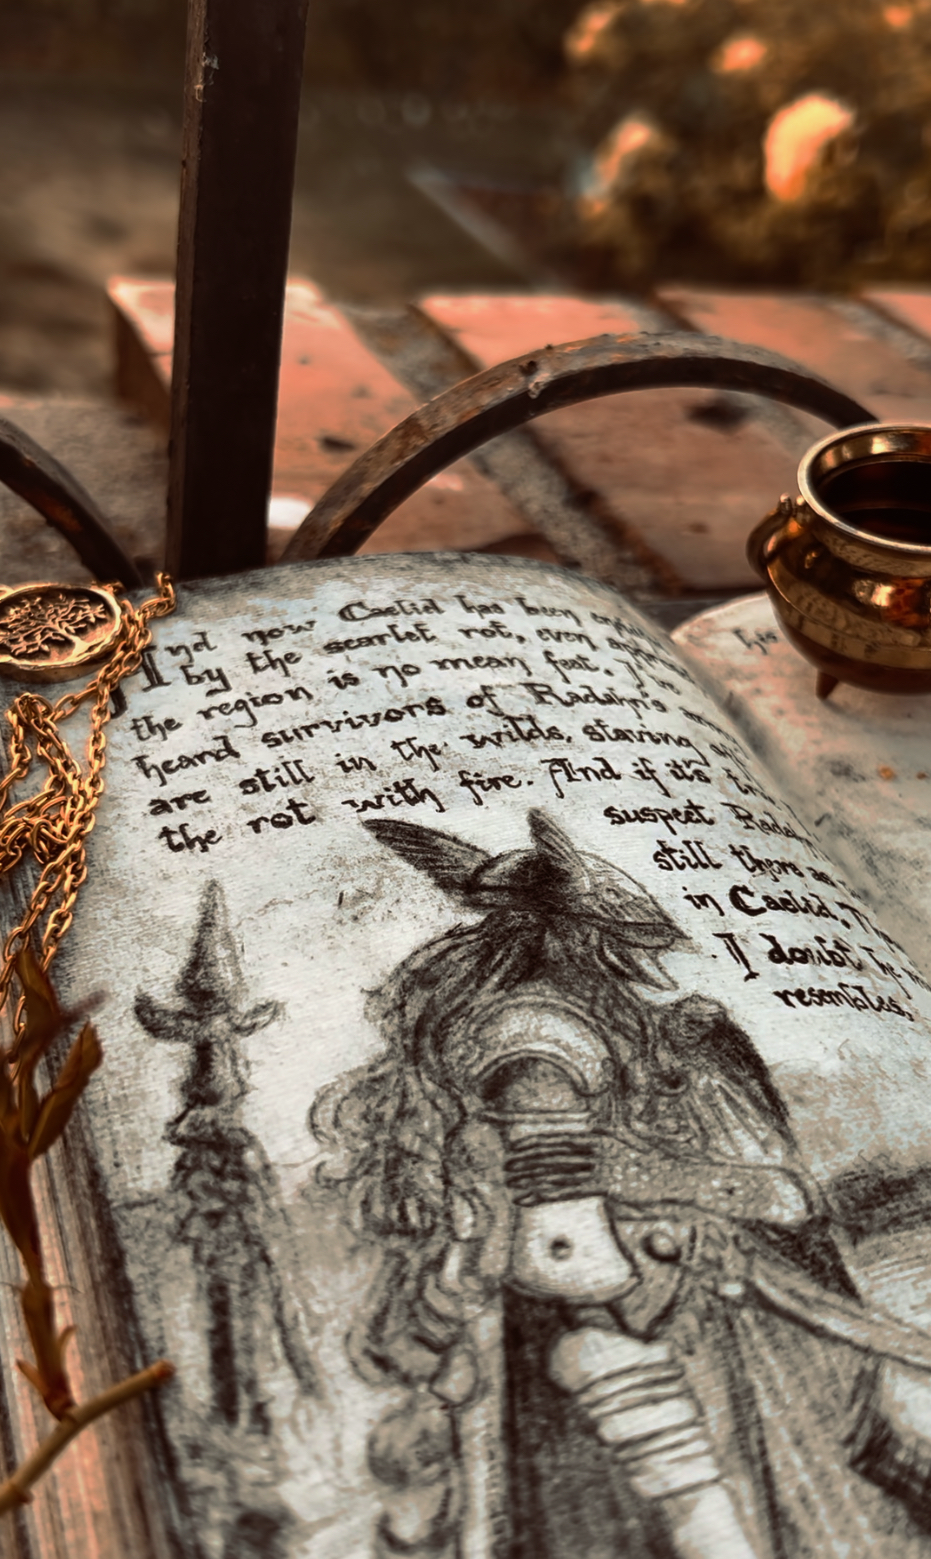 And now Caelid has been
by the scarlet rot, even
the region is no mean feat. I've
heard survivors of Radahn's
are still in the wilds, staving
the rot with fire. And if it's
suspect
still there
in Caelid,
I doubt he
resembles.
his